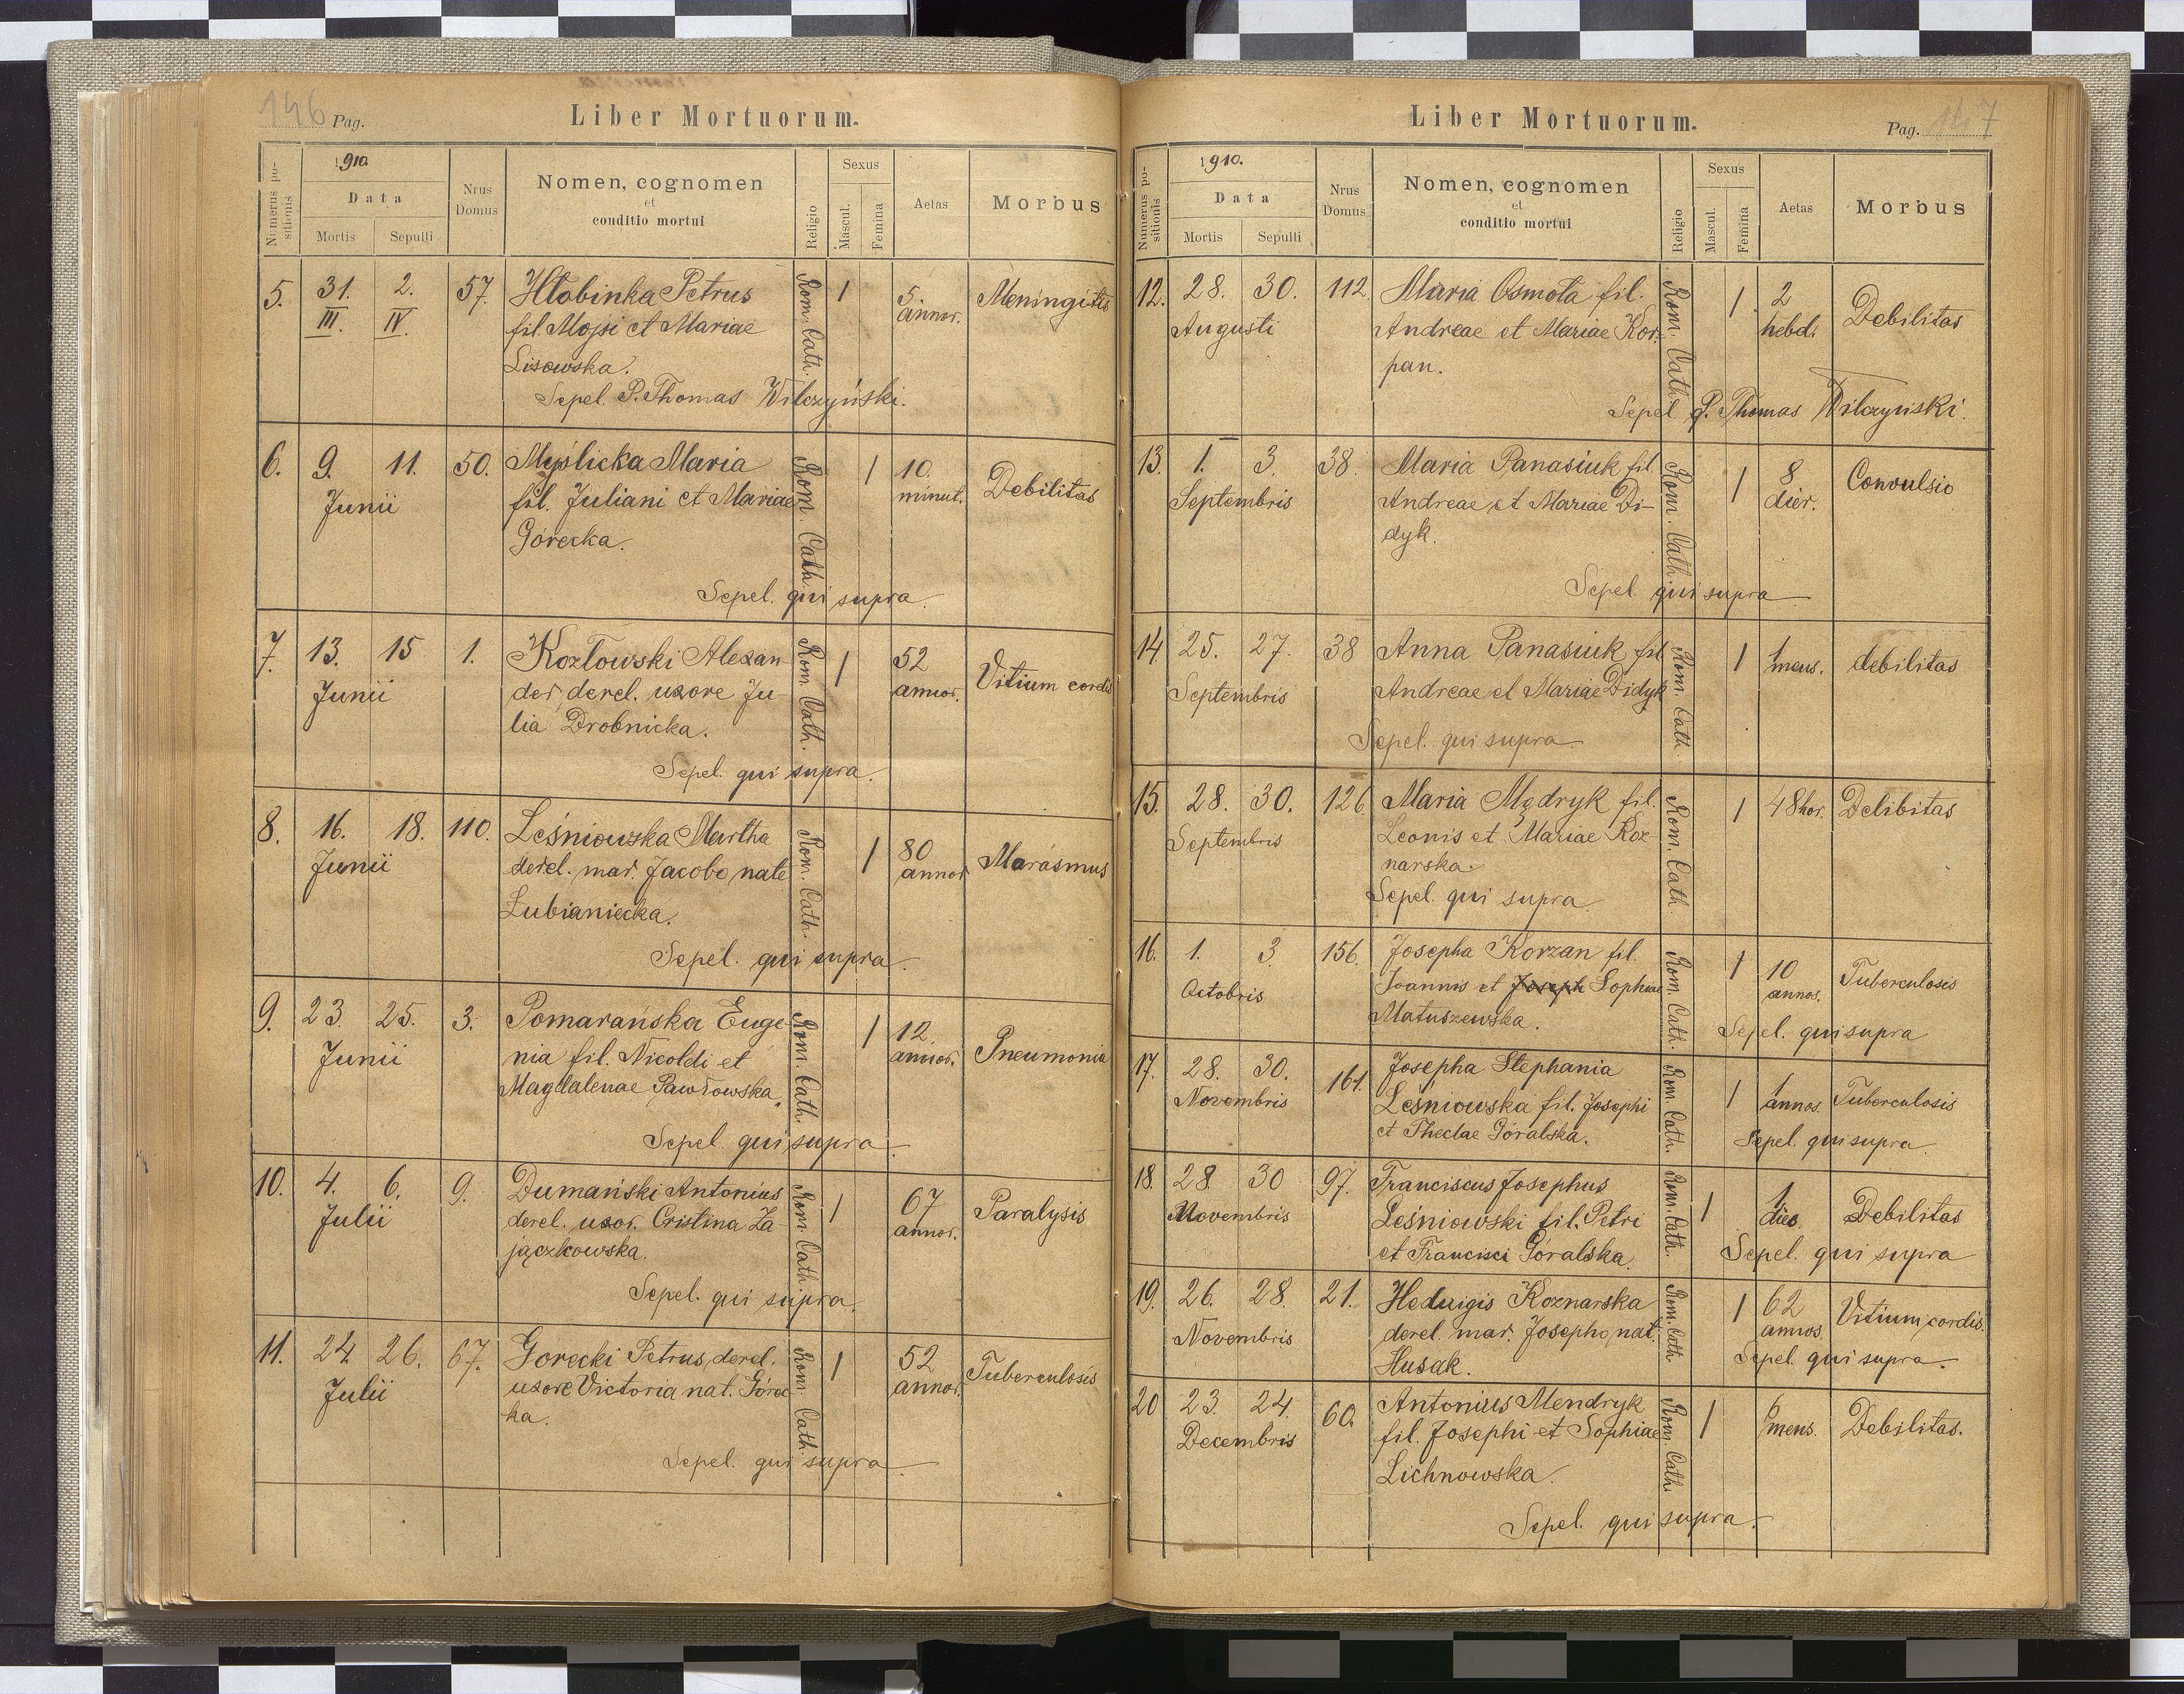 146 Pag.
Liber Mortuorum.
Numerus positionis
1910.
Data
Mortis Sepulti
Nrus Domus
Nomen, cognomen
et
conditio mortui
Religio
Sexus
Mascul. Femina
Aetas
Morbus
5. 31. 2. 57. Hłobinka Petrus Rom. Cath. 1 5. Meningitis
III. IV. fil. Mojsi et Mariae annor.
Lisowska.
Sepel. P. Thomas Wilczyński.
6. 9. 11. 50. Myślicka Maria Rom. Cath. 1 10. Debilitas
Junii fil. Juliani et Mariae minut.
Górecka.
Sepel. qui supra.
7. 13. 15 1. Kozłowski Alexan Rom. Cath. 1 52 Vitium cordis
Junii der, derel. uxore Ju annor.
lia Drobnicka.
Sepel. qui supra.
8. 16. 18. 110. Leśniowska Martha Rom. Cath. 1 80 Marasmus
Junii derel. mar. Jacobo nate annor
Łubianiecka.
Sepel. qui supra.
9. 23. 25. 3. Pomarańska Euge- Rom. Cath. 1 12. Pneumonia
Junii nia fil. Nicolai et annor.
Magdalenae Pawłowska.
Sepel. qui supra.
10. 4. 6. 9. Dumański Antonius Rom. Cath. 1 67 Paralysis
Julii derel. uxor. Cristina Za annor.
jączkowska.
Sepel. qui supra.
11. 24. 26. 67. Gorecki Petrus, derel. Rom. Cath. 1 52 Tuberculosis
Julii uxore Victoria nat. Górec annor.
ka.
Sepel. qui supra.
Liber Mortuorum.
Pag. 147
Numerus positionis
1910.
Data
Mortis Sepulti
Nrus Domus
Nomen, cognomen
et
conditio mortui
Religio
Sexus
Mascul. Femina
Aetas
Morbus
12. 28. 30. 112. Maria Osmota fil. Rom. Cath. 1 2 Debilitas
Augusti Andreae et Mariae Kor= hebd.
pan.
Sepel P. Thomas Wilczyński.
13. 1. 3. 38. Maria Panasiuk fil. Rom. Cath. 1 8 Convulsio
Septembris Andreae et Mariae Di- dier.
dyk.
Sepel. qui supra
14. 25. 27. 38 Anna Panasiuk fil Rom. Cath. 1 1 mens. debilitas
Septembris Andreae et Mariae Didyk
Sepel. qui supra.
15. 28. 30. 126 Maria Mędryk fil. Rom. Cath. 1 48 hor. Delibitas
Septembris Leonis et Mariae Koz
narska.
Sepel. qui supra.
16. 1. 3. 156. Josepha Korzan fil. Rom. Cath. 1 10 Tuberculosis
Octobris Joannis et Joseph Sophiae annos.
Matuszewska. Sepel. qui supra
17. 28. 30. 161. Josepha Stephania Rom. Cath. 1 1 Tuberculosis
Novembris Leśniowska fil. Josephi annos.
et Theclae Góralska. Sepel. qui supra.
18. 28. 30 97. Franciscus Josephus Rom. Cath. 1 1 Debilitas
Novembris Leśniowski fil. Petri dies.
et Francisci Góralska. Sepel. qui supra
19. 26. 28. 21. Heduigis Koznarska Rom. Cath 1 62 Vitium cordis.
Novembris derel. mar. Josepho, nat. annos.
Husak. Sepel. qui supra.
20 23. 24. 60. Antonius Mendryk Rom. Cath. 1 6 Debilitas.
Decembris fil. Josephi et Sophiae mens.
Lichnowska.
Sepel. qui supra.